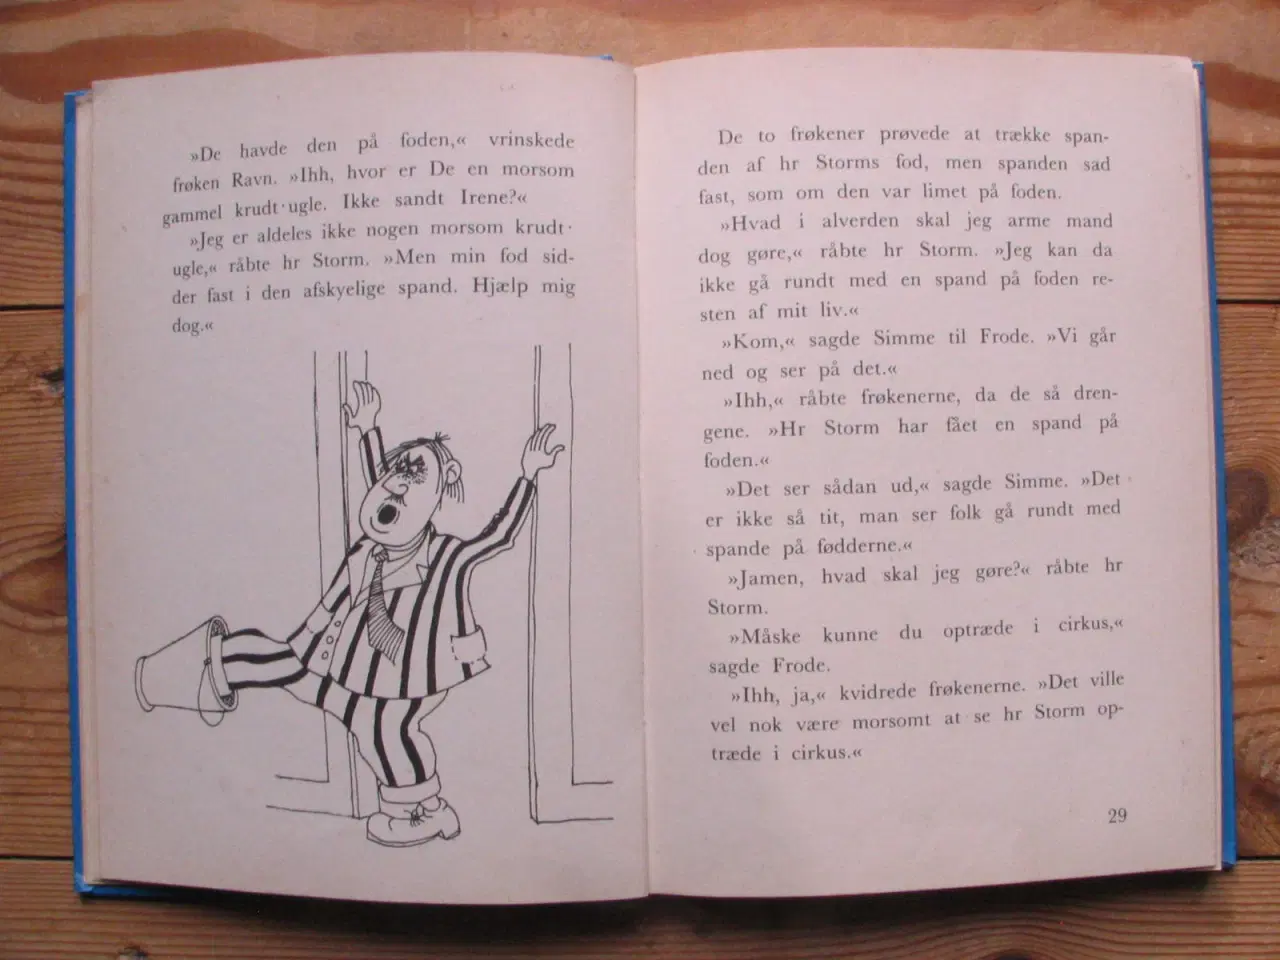 »De havde den på foden,« vrinskede
frøken Ravn. »Ihh, hvor er De en morsom
gammel krudt-ugle. Ikke sandt Irene?«
»Jeg er aldeles ikke nogen morsom krudt-
ugle,« råbte hr Storm. »Men min fod sid-
der fast i den afskyelige spand. Hjælp mig
dog.«
De to frøkener prøvede at trække span-
den af hr Storms fod, men spanden sad
fast, som om den var limet på foden.
»Hvad i alverden skal jeg arme mand
dog gøre,« råbte hr Storm. »Jeg kan da
ikke gå rundt med en spand på foden re-
sten af mit liv.«
»Kom,« sagde Simme til Frode. »Vi går
ned og ser på det.«
»Ihh,« råbte frøkenerne, da de så dren-
gene. »Hr Storm har fået en spand på
foden.«
»Det ser sådan ud,« sagde Simme. »Det
er ikke så tit, man ser folk gå rundt med
spande på fødderne.«
»Jamen, hvad skal jeg gøre?« råbte hr
Storm.
»Måske kunne du optræde i cirkus,«
sagde Frode.
»Ihh, ja,« kvidrede frøkenerne. »Det ville
vel nok være morsomt at se hr Storm op-
træde i cirkus.«
29